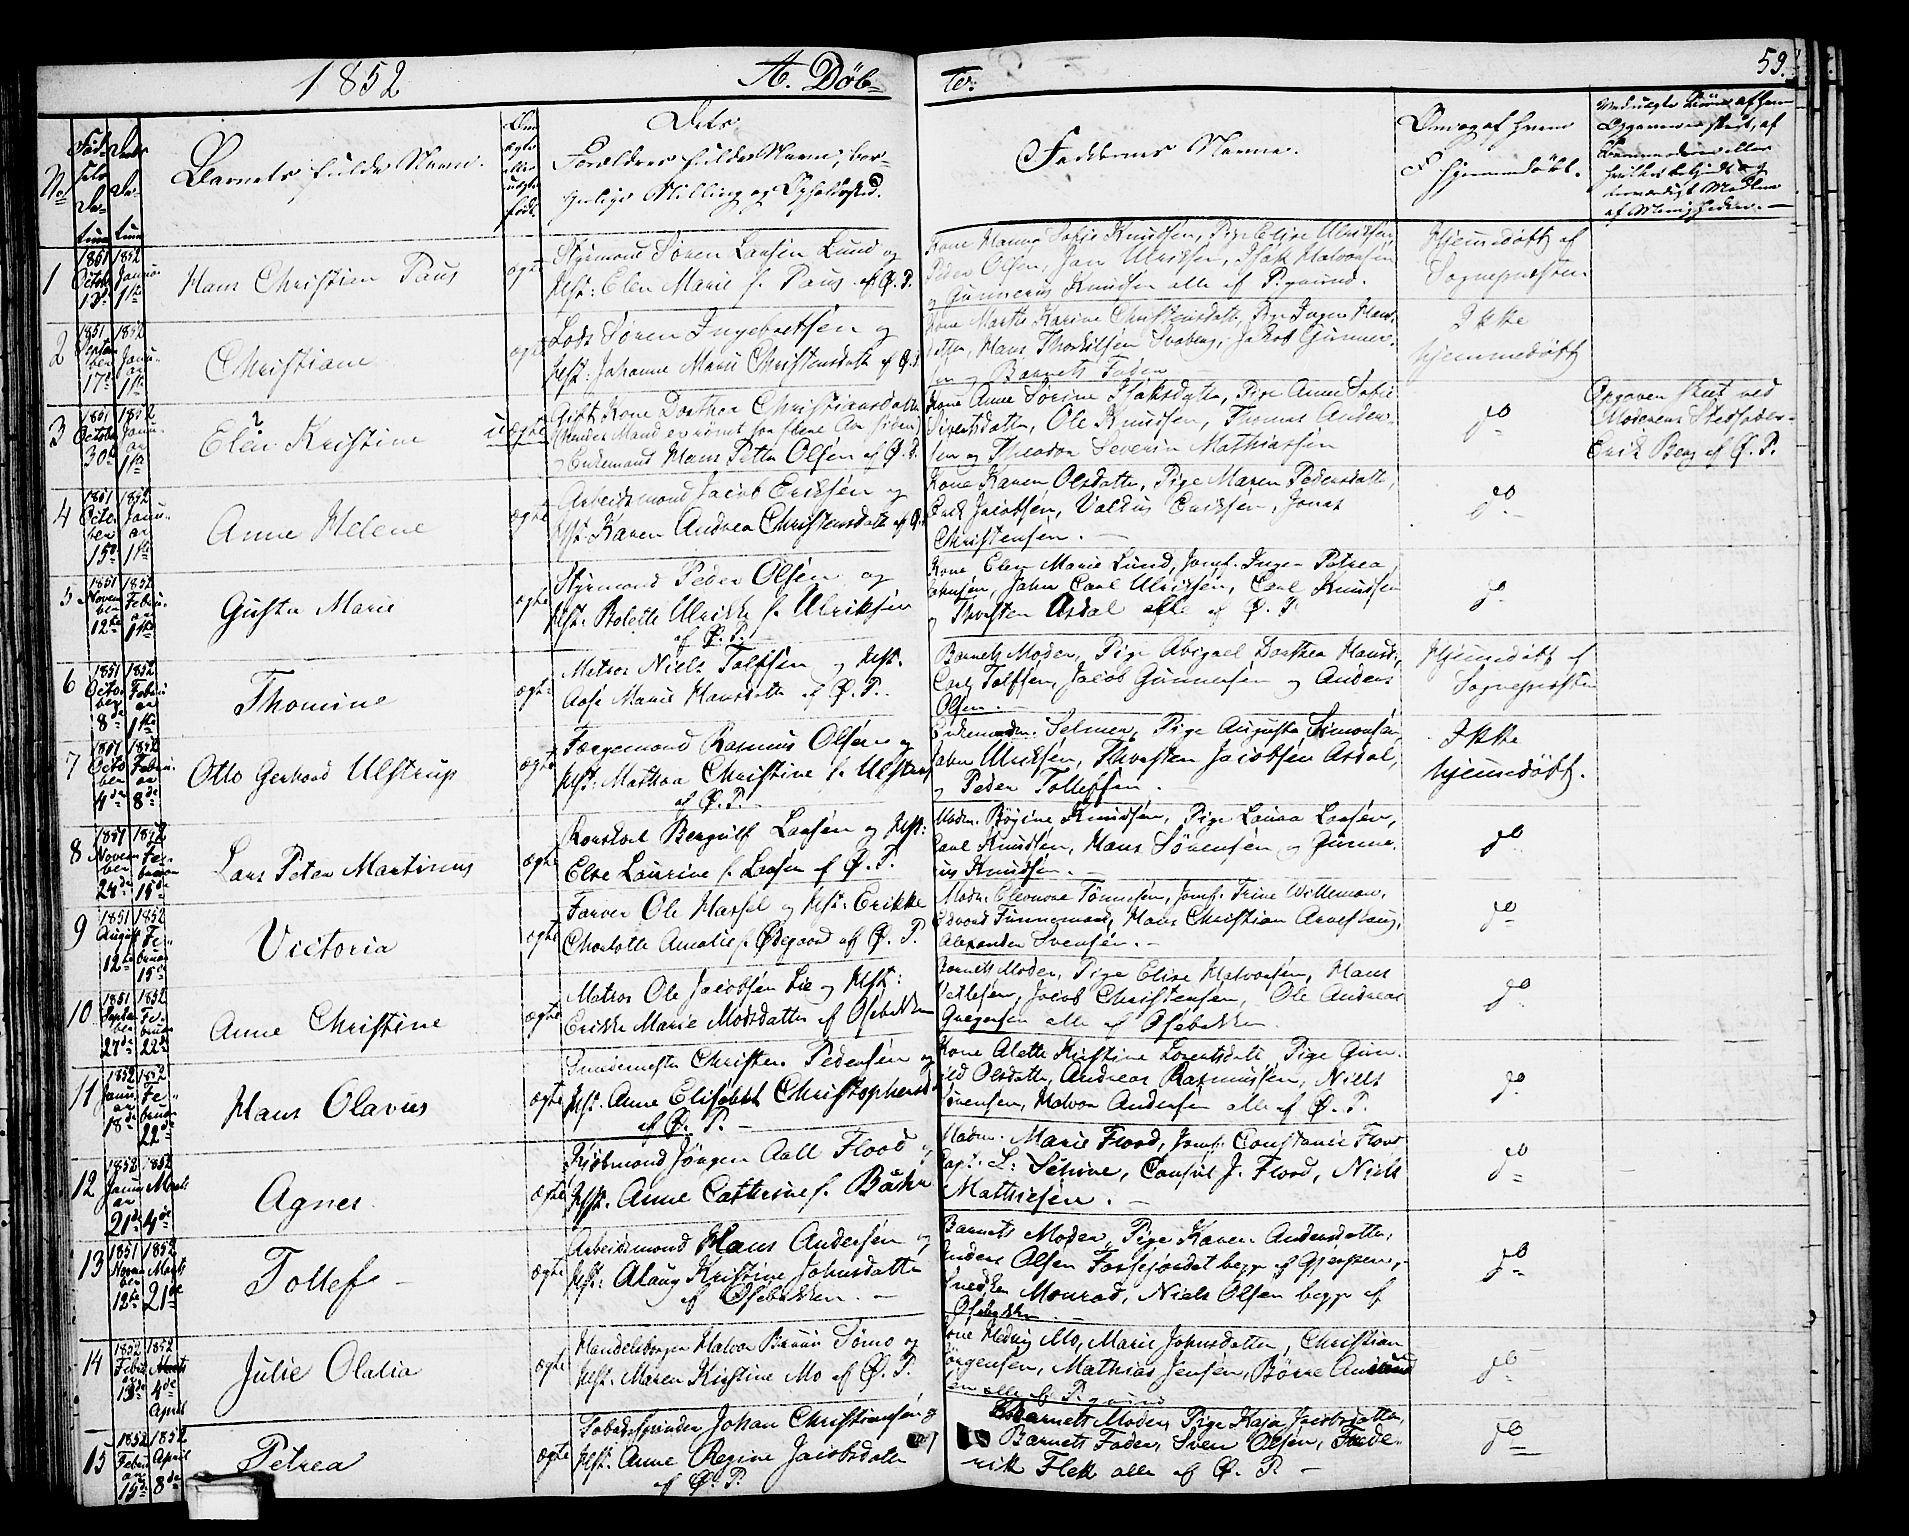 1852
A. Døb-
te.
59.
No
Fød-
sels
Da-
tum
Daabs
Da-
tum
Barnets fulde Navn.
Om
ægte
eller
uægte
født.
Dets
Forældres fulde Navn, bor-
gerlige Stilling og Opholdssted.
Faddernes Navne.
Om og af hvem
hjemmedøbt.
1
1851
October
13de
1852
Janu-
ar
1ste
Hans Christian Paus
ægte
Styrmand Søren Larsen Lund og
Hst: Elen Marie f. Paus af Ø. P.
Kone Hanna Sofie Knudsen, Pige Elise Ulriksen,
Peder Olsen, Jan Ulriksen, Isak Halvorsen
og Gunnerius Knudsen alle af Pgrund.
Hjemmedøbt af
Sognepresten
2
1851
Septem-
ber
17de
1852
Janu-
ar
1ste
Christiane
ægte
Lods Søren Ingebretsen og
Hst: Johanne Marie Christensdatter af Ø. P.
Kone Marthe Karine Christensdatter, Pige Ingen Hans-
datter, Hans Thorkilsen Svaberg, Jakob Gunner-
sen og Barnets Fader
Ikke
hjemmedøbt
3
1851
October
30te
1852
Janu-
ar
1ste
?
Elen Kristine
uægte
Gift Kone Dorthea Christiansdatter
(hendes Mand er rømt for flere Aar siden)
og Enkemand Hans Petter Olsen af Ø. P.
Kone Anne Sørine Isaksdatter, Pige Anne Sofie
Sivertsdatter, Ole Knudsen, Thomas Ander-
sen og Theodor Severin Mathiassen
do
Opgaven skeet ved
Moderens Stedfader
Erik Berg af Ø. P.
4
1851
Octo-
ber
15de
1852
Janu-
ar
1ste
Anne Helene
ægte
Arbeidsmand Jacob Eriksen og
Hst: Karen Andrea Christensdatter af Ø. P.
Kone Karen Olsdatter, Pige Maren Pedersdatter,
Erik Jacobsen, Valdus Eriksen, Jonas
Christensen.
do
5
1851
Novem-
ber
12te
1852
Febru-
ar
1ste
Gusta Marie
ægte
Styrmand Peder Olsen og
Hst: Bolette Ulrikke f. Ulriksen
af Ø. P.
Kone Elen Marie Lund, Jomf. Inger Petrea
Johnsen, Jahn Carl Ulriksen, Carl Knudsen
og Thorsten Asdal alle af Ø. P.
do
6
1851
Octo-
ber
8de
1852
Febru-
ar
1ste
Thomine
ægte
Matros Niels Tolfsen og Hst.
Aase Marie Hansdatter af Ø. P.
Barnets Moder, Pige Abigael Dorthea Hansd.,
Carl Tolfsen, Jacob Gunnersen og Anders
Olsen.
Hjemmedøbt af
Sognepresten
7
1851
Octo-
ber
4de
1852
Febru-
ar
8de
Otto Gerhard Ulstrup
ægte
Færgemand Rasmus Olsen og
Hst: Marthea Christine f. Ulstrup
af Ø. P.
Enkemadm. Selmer, Pige Augusta Simonsen,
Jahn Ulriksen, Thorsten Jacobsen Asdal,
og Peder Tollefsen.
Ikke
hjemmedøbt.
8
1851
Novem-
ber
24de
1852
Fe-
bruar
15de
Lars Peter Martinius
ægte
Karskarl Bergulf Larsen og Hst:
Else Laurine f. Larsen af Ø. P.
Madm. Bøgine Knudsen, Pige Laura Larsen,
Carl Knudsen, Hans Sørensen og Gunne-
rius Knudsen.
do
9
1851
August
12te
1852
Fe-
bruar
15de
Victoria
ægte
Farver Ole Hassel og Hst: Erikke
Charlotte Amalie f. Ødegaard af Ø. P.
Madm. Eleonora Tønnesen, Jomf. Trine Willeman,
Edvard Funnemand, Hans Christian Arvestang,
Alexander Svensen.
do
10
1851
Septem-
ber
27de
1852
Fe-
bruar
22de
Anne Christine
ægte
Matros Ole Jacobsen Lie og Hst:
Erikke Marie Madsdatter af Osebakken
Barnets Moder, Pige Elise Halvorsen, Hans
Detlefsen, Jacob Christensen, Ole Andreas
Gregersen alle af Osebakken.
do
11
1852
Janu-
ar
18de
1852
Fe-
bruar
22de
Hans Olavus
ægte
Smedemester Christen Pedersen og
Hst: Anne Elisabeth Christophersd.
af Ø. P.
Kone Alette Kristine Lorentsdatt, Pige Gun-
ild Olsdatter, Andreas Rasmussen, Niels
Sørensen, Halvor Andersen alle af Ø. P.
do
12
1852
Janu-
ar
21de
1852
Marts
4de
Agnes.
ægte
Kjøbmand Jørgen Aall Flood og
Hst. Anne Cathrine f. Bächn
Madm. Marie Flood, Jomf. Constance Flood
Capt. L. Schive, Consul J. Flood, Niels
Mathiesen.
do
13
1851
Novem-
ber
12te
1852
Marts
21de
Tollef
ægte
Arbeidsmand Hans Andersen og
Hst: Alaug Kristine Johnsdatter
af Osebakken.
Barnets Moder, Pige Karen Andersdatter,
Anders Olsen Fossejordet begge af Gjerpen,
Snedker Monrad, Niels Olsen begge af
Osebakken.
do
14
1852
Febru-
ar
13de
1852
Marts
4de
April
Julie Olalia
ægte
Handelsborger Halvor Bruun Tømo og
Hst. Maren Kirstine Mo af Ø. P.
Kone Hedvig Mo, Marie Johnsdatter, Christian
Jørgensen, Mathias Jensen, Børre Amund-
sen alle af Pgrund
do
15
1852
Febru-
ar
15de
1852
April
8de
Petrea
ægte
Tobaksspinder Johan Christiansen og
Hst. Anne Regine Jacobsdatter
af Ø. P.
Barnets Moder, Pige Kaja Jacobsdatter,
Barnets Fader, Sven Olsen, Frede-
rik Flek alle af Ø. P.
do